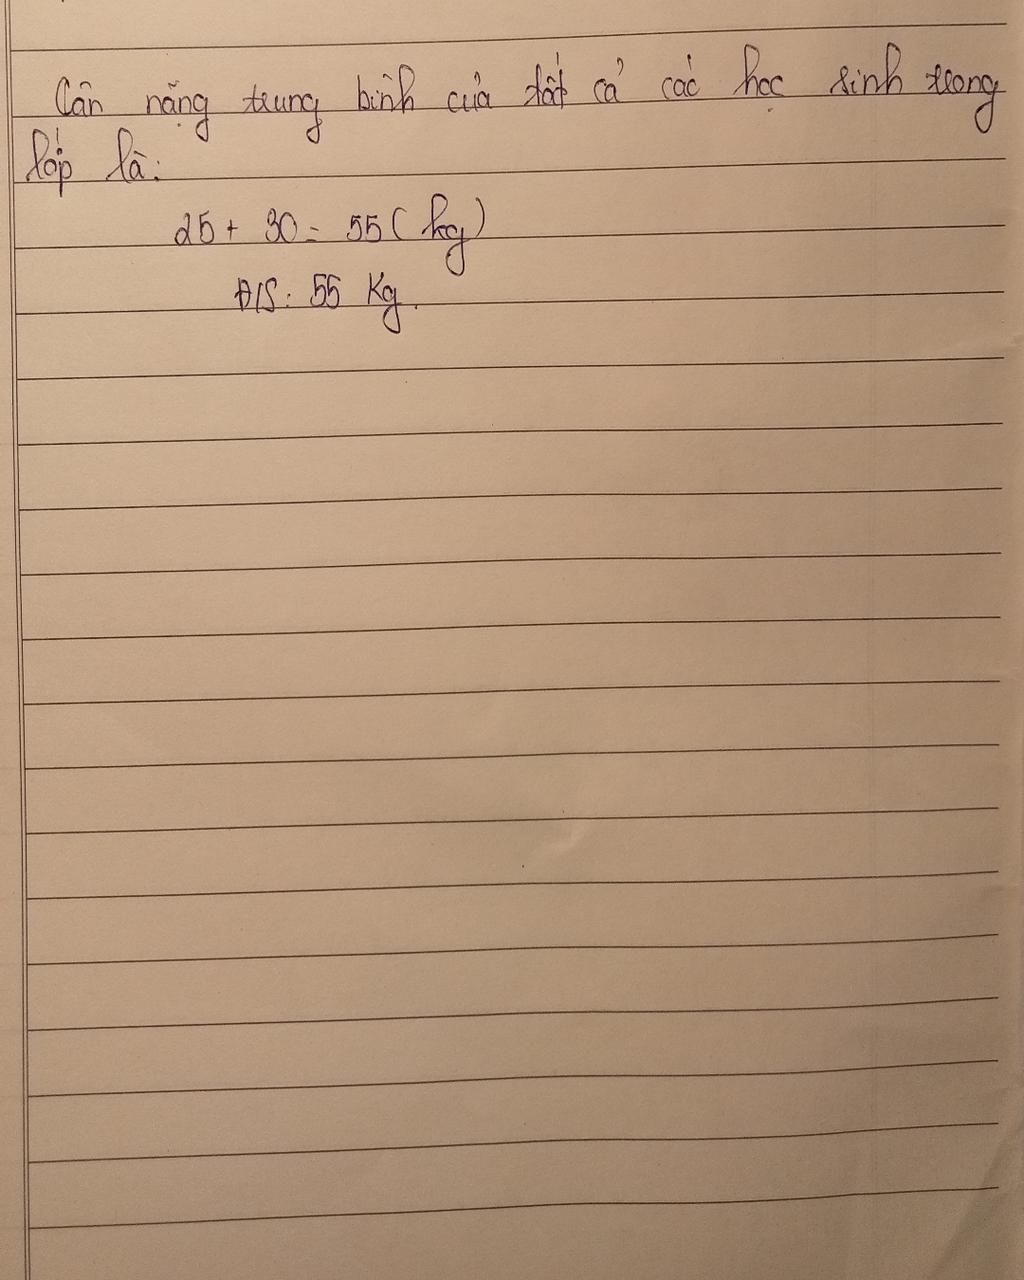 Cân nặng trung bình của tất cả các học sinh trong
lớp là:
25 + 30 = 55 (kg)
Đ/S: 55 Kg.